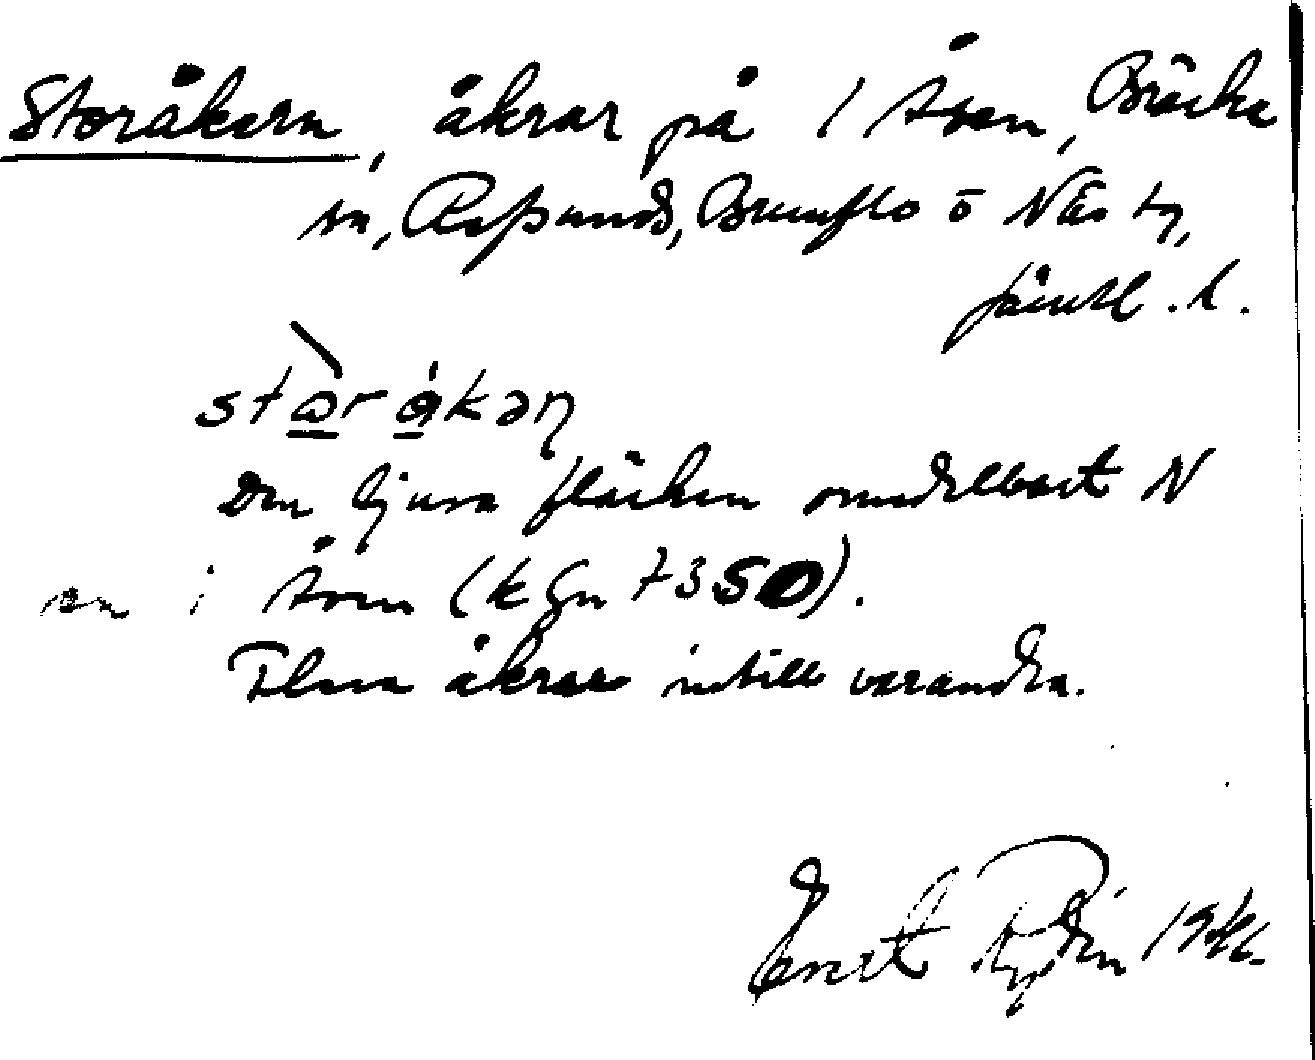 Storåkern, åkrar på 1 Åsen, Bräcke
sn, Refsunds, Brunflo o Näs tg,
Jämtl. l.
stɷ̀rɷ́kəɳ
Den ljusa fläcken omedelbart N
om i Åsen (kfn 7350).
Flera åkrar intill varandra.
Ernst Rydin